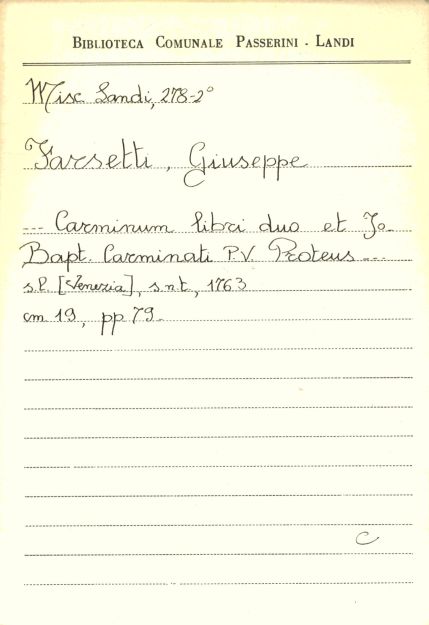 BIBLIOTECA COMUNALE PASSERINI - LANDI
Misc Landi, 278-2°
Farsetti, Giuseppe
--- Carminum libri duo et Jo-
Bapt. Carminati P.V. Proteus ---
s.l. [Venezia], s.n.t., 1763
cm 19, pp 79-
C